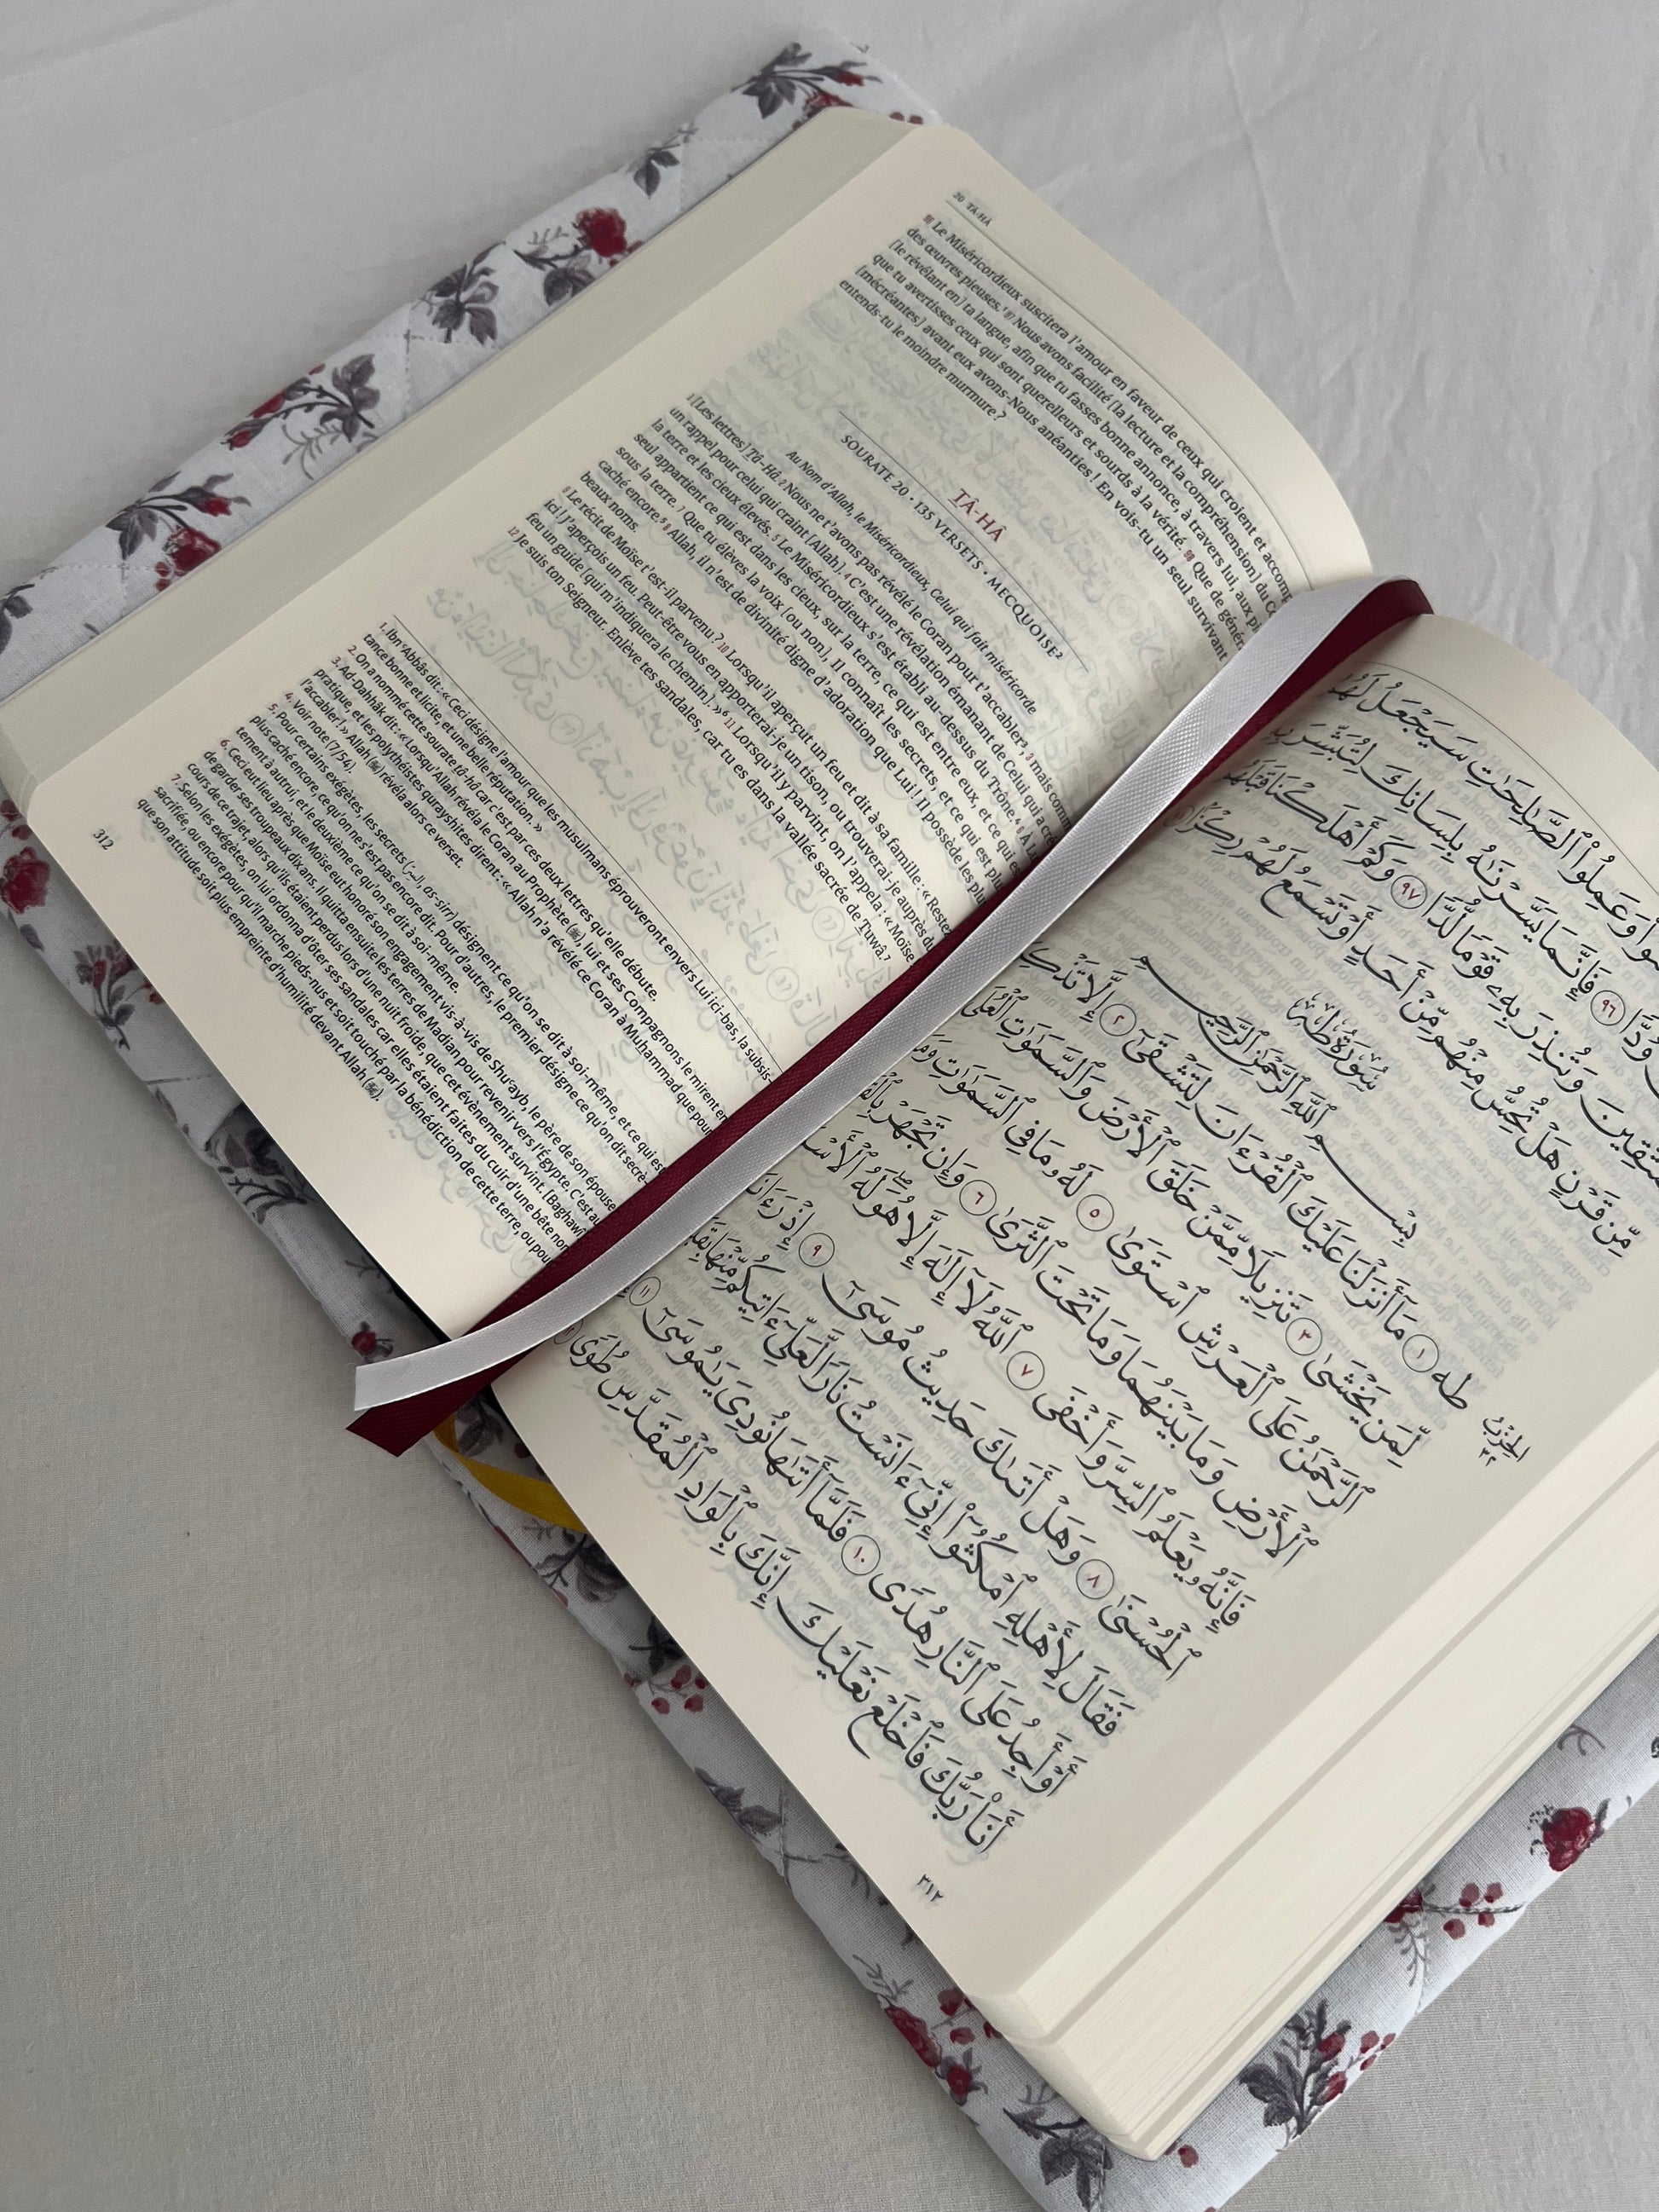 20 TÂ-HÂ
96 Le Miséricordieux suscitera l'amour en faveur de ceux qui croient et accomp
des œuvres pieuses.¹ 97 Nous avons facilité [la lecture et la compréhension] du Co
[le révélant en] ta langue, afin que tu fasses bonne annonce, à travers lui, aux pi
que tu avertisses ceux qui sont querelleurs et sourds à la vérité. 98 Que de génér
[mécréantes] avant eux avons-Nous anéanties ! En vois-tu un seul survivant
entends-tu le moindre murmure ?
TÂ-HÂ
SOURATE 20 • 135 VERSETS • MECQUOISE²
Au Nom d'Allah, le Miséricordieux, Celui qui fait miséricorde
1 [Les lettres] Tâ-Hâ. 2 Nous ne t'avons pas révélé le Coran pour t'accabler³, 3 mais comm
un rappel pour celui qui craint [Allah]. 4 C'est une révélation émanant de Celui qui a créé
la terre et les cieux élevés. 5 Le Miséricordieux s'est établi au-dessus du Trône.⁴ 6 À Lu
seul appartient ce qui est dans les cieux, sur la terre, ce qui est entre eux, et ce qui es
sous la terre. 7 Que tu élèves la voix [ou non], Il connaît les secrets, et ce qui est plus
caché encore.⁵ 8 Allah, il n'est de divinité digne d'adoration que Lui ! Il possède les plus
beaux noms.
9 Le récit de Moïse t'est-il parvenu ? 10 Lorsqu'il aperçut un feu et dit à sa famille : « Restez
ici ! J'aperçois un feu. Peut-être vous en apporterai-je un tison, ou trouverai-je auprès du
feu un guide [qui m'indiquera le chemin]. »⁶ 11 Lorsqu'il y parvint, on l'appela : « Moïse
12 Je suis ton Seigneur. Enlève tes sandales, car tu es dans la vallée sacrée de Tuwâ.⁷
1. Ibn ʿAbbâs dit : « Ceci désigne l'amour que les musulmans éprouveront envers Lui ici-bas, la subsis-
tance bonne et licite, et une belle réputation. »
2. On a nommé cette sourate tâ-hâ car c'est par ces deux lettres qu'elle débute.
3. Ad-Dahhâk dit : « Lorsqu'Allah révéla le Coran au Prophète (ﷺ), lui et ses Compagnons le mirent en
pratique, et les polythéistes qurayshites dirent : « Allah n'a révélé ce Coran à Muhammad que pour
l'accabler ! » Allah révéla alors ce verset.
4. Voir note (7/54).
5. Pour certains exégètes, les secrets (السر, as-sirr) désignent ce qu'on se dit à soi-même, et ce qui est
plus caché encore, ce qu'on ne s'est pas encore dit. Pour d'autres, le premier désigne ce qu'on dit secrè-
tement à autrui, et le deuxième ce qu'on se dit à soi-même.
6. Ceci eut lieu après que Moïse eut honoré son engagement vis-à-vis de Shuʿayb, le père de son épouse
de garder ses troupeaux dix ans. Il quitta ensuite les terres de Madian pour revenir vers l'Égypte. C'est au
cours de ce trajet, alors qu'ils étaient perdus lors d'une nuit froide, que cet évènement survint. [Baghawî
7. Selon les exégètes, on lui ordonna d'ôter ses sandales car elles étaient faites du cuir d'une bête non
sacrifiée, ou encore pour qu'il marche pieds-nus et soit touché par la bénédiction de cette terre, ou pour
que son attitude soit plus empreinte d'humilité devant Allah.
312
وَعَمِلُوا۟ ٱلصَّـٰلِحَـٰتِ سَيَجْعَلُ لَهُمُ
وُدًّا ٩٦ فَإِنَّمَا يَسَّرْنَـٰهُ بِلِسَانِكَ لِتُبَشِّرَ بِهِ
ٱلْمُتَّقِينَ وَتُنذِرَ بِهِۦ قَوْمًا لُّدًّا ٩٧ وَكَمْ أَهْلَكْنَا قَبْلَهُم
مِّن قَرْنٍ هَلْ تُحِسُّ مِنْهُم مِّنْ أَحَدٍ أَوْ تَسْمَعُ لَهُمْ رِكْزًۢا
سُورَةُ طه
بِسْمِ ٱللَّهِ ٱلرَّحْمَـٰنِ ٱلرَّحِيمِ
طه ١ مَآ أَنزَلْنَا عَلَيْكَ ٱلْقُرْءَانَ لِتَشْقَىٰٓ ٢ إِلَّا تَذْكِ
لِّمَن يَخْشَىٰ ٣ تَنزِيلًا مِّمَّنْ خَلَقَ ٱلْأَرْضَ وَٱلسَّمَـٰوَٰتِ ٱلْعُلَى
ٱلرَّحْمَـٰنُ عَلَى ٱلْعَرْشِ ٱسْتَوَىٰ ٥ لَهُۥ مَا فِى ٱلسَّمَـٰوَٰتِ وَمَ
ٱلْأَرْضِ وَمَا بَيْنَهُمَا وَمَا تَحْتَ ٱلثَّرَىٰ ٦ وَإِن تَجْهَرْ بِٱلْقَ
فَإِنَّهُۥ يَعْلَمُ ٱلسِّرَّ وَأَخْفَى ٧ ٱللَّهُ لَآ إِلَـٰهَ إِلَّا هُوَ لَهُ ٱلْأَسْ
ٱلْحُسْنَىٰ ٨ وَهَلْ أَتَىٰكَ حَدِيثُ مُوسَىٰٓ ٩ إِذْ رَءَا نَا
فَقَالَ لِأَهْلِهِ ٱمْكُثُوٓا۟ إِنِّىٓ ءَانَسْتُ نَارًا لَّعَلِّىٓ ءَاتِيكُم مِّنْهَا بِقَبَ
أَوْ أَجِدُ عَلَى ٱلنَّارِ هُدًى ١٠ فَلَمَّآ أَتَىٰهَا نُودِىَ يَـٰمُوسَىٰٓ ١١
أَنَا۠ رَبُّكَ فَٱخْلَعْ نَعْلَيْكَ إِنَّكَ بِٱلْوَادِ ٱلْمُقَدَّسِ طُوًى
الحزب
٣٢
٣١٢